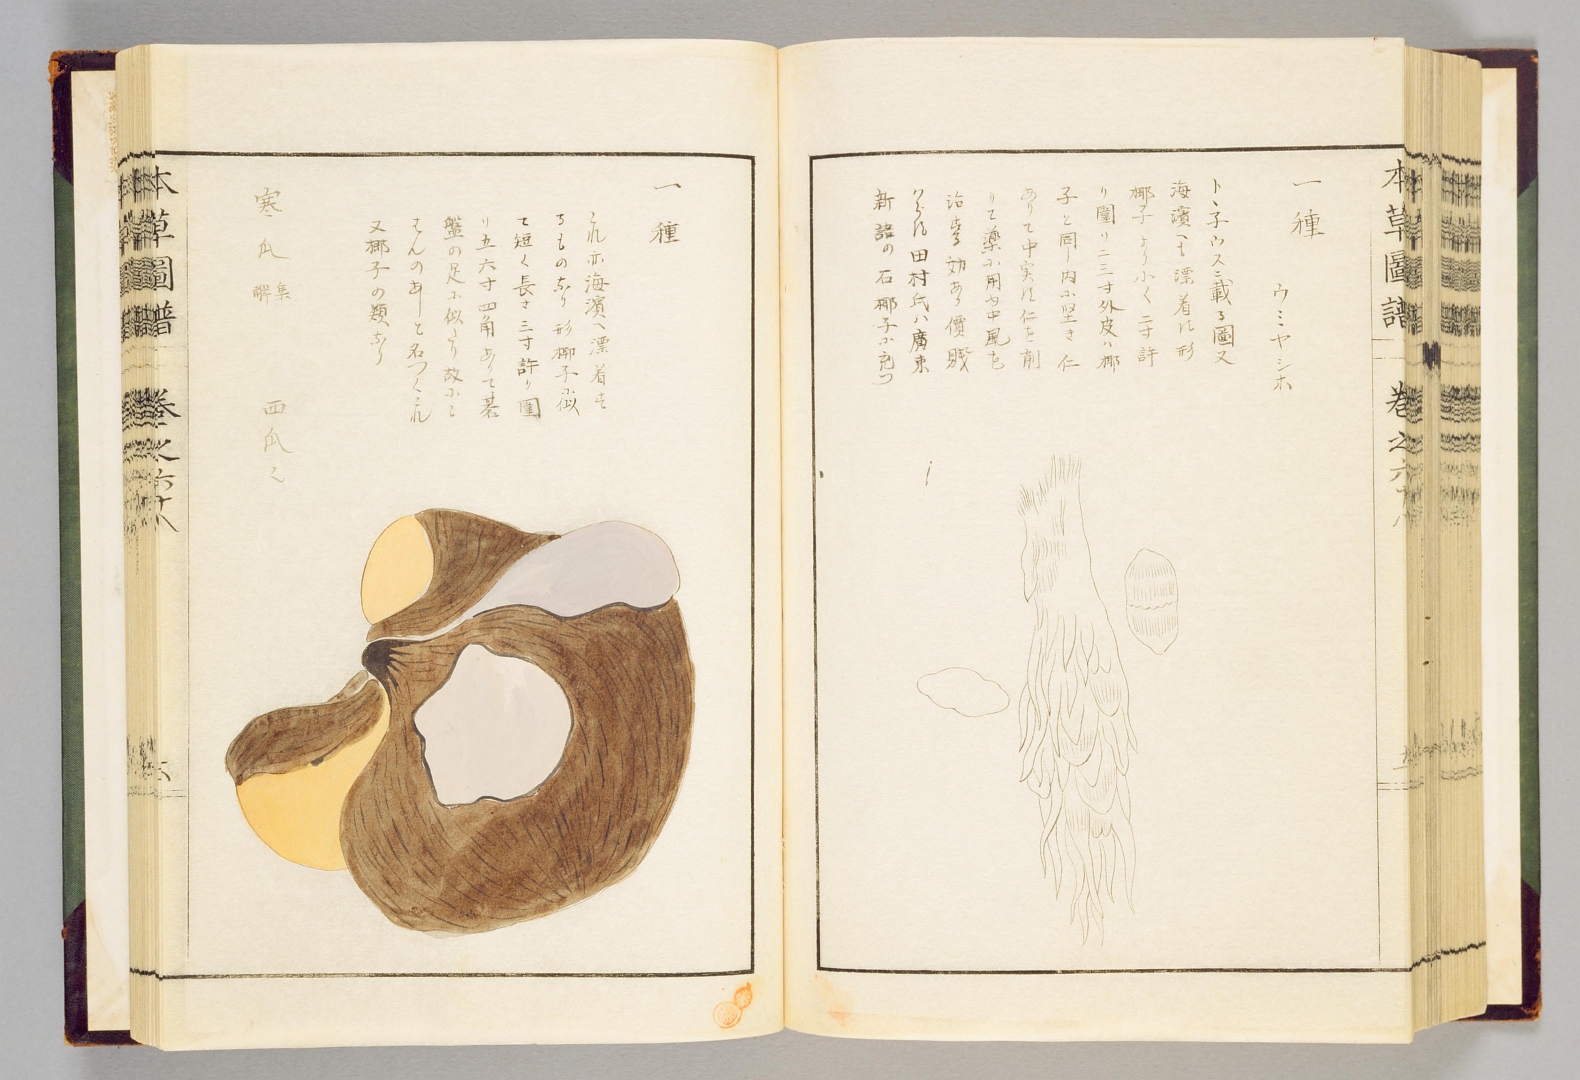 本草圖譜 巻之六十八
一種
ウミヤシホ
トヽ子ウスニ載る圖又
海濱へも漂着は形
椰子より小く二寸許
り圍り二三寸外皮ハ椰
子と同し内に堅き仁
ありて中実は仁を削
りて藥に用中風を
治 効あり價賤
田村氏ハ廣東
新語の石椰子に充つ
一種
これ亦海濱へ漂着す
るものなり形椰子に似
て短く長さ三寸許り圍
り五六寸四角ありて碁
盤の足に似たり故にこ
はんのあしと名つくこれ
又椰子の類なり
寒瓜 集解 西瓜
本草圖譜 巻之六十八